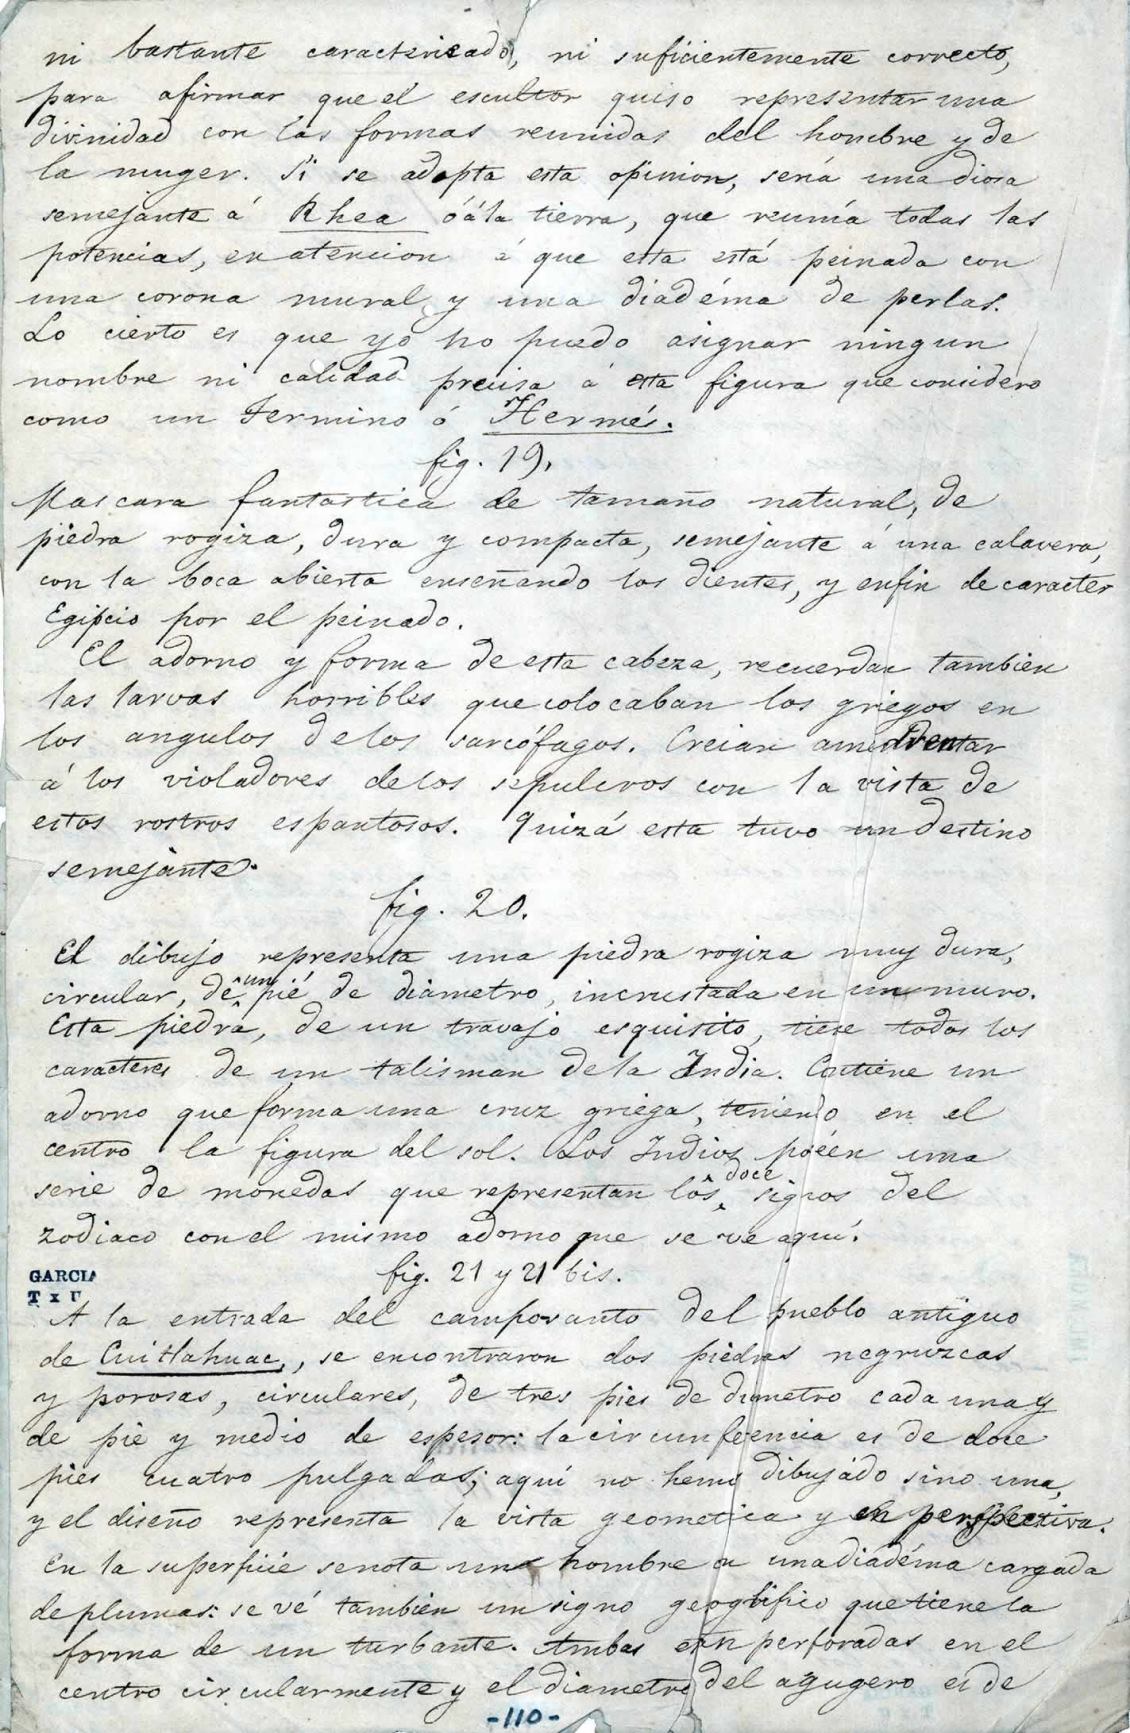 ni bastante caracterizado, ni suficientemente correcto,
para afirmar que el escultor quiso representar una
divinidad con las formas reunidas del hombre y de
la muger. Si se adopta esta opinion, seria una diosa
semejante á Rhea ó á la tierra, que reunía todas las
potencias, en atencion á que esta está peinada con
una corona mural y una diadéma de perlas.
Lo cierto es que yo no puedo asignar ningun
nombre ni calidad precisa á esta figura que considero
como un Termino ó Hermés.
fig. 19.
Mascara fantastica de tamaño natural, de
piedra rogiza, dura y compacta, semejante á una calavera,
con la boca abierta enseñando los dientes, y enfin de caracter
Egipcio por el peinado.
El adorno y forma de esta cabeza, recuerdan tambien
las larvas horribles que colocaban los griegos en
los angulos de los sarcófagos. Creian amedrentar
á los violadores de los sepulcros con la vista de
estos rostros espantosos. Quizá esta tuvo un destino
semejante.
fig. 20.
El dibujo representa una piedra rogiza muy dura,
circular, de un pié de diametro, incrustada en un muro.
Esta piedra, de un travajo esquisito, tiene todos los
caracteres de un talisman de la India. Contiene un
adorno que forma una cruz griega, teniendo en el
centro la figura del sol. Los Indios poséen una
serie de monedas que representan los doce signos del
zodiaco con el mismo adorno que se ve aquí.
fig. 21 y 21 bis.
GARCIA
A la entrada del camposanto del pueblo antiguo
de Cuitlahuac, se encontraron dos piedras negruzcas
y porosas, circulares, de tres pies de diametro cada una y
de pie y medio de espesor: la circunferencia es de doce
pies cuatro pulgadas; aquí no hemos dibujado sino una,
y el diseño representa la vista geometrica y en perspectiva.
En la superficie se nota un hombre con una diadéma cargada
de plumas: se vé tambien un signo geroglifico que tiene la
forma de un turbante. Ambas están perforadas en el
centro circularmente y el diametro del agugero es de
-110-